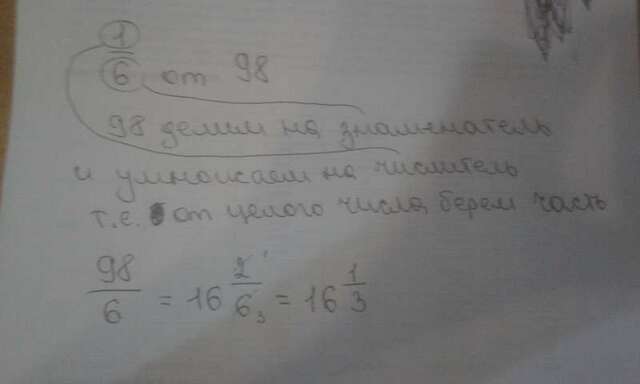 1/6 от 98
98 делим на знаменатель
и умножаем на числитель
т.е. от целого числа берем часть
98/6 = 16 2/6 1 3 = 16 1/3